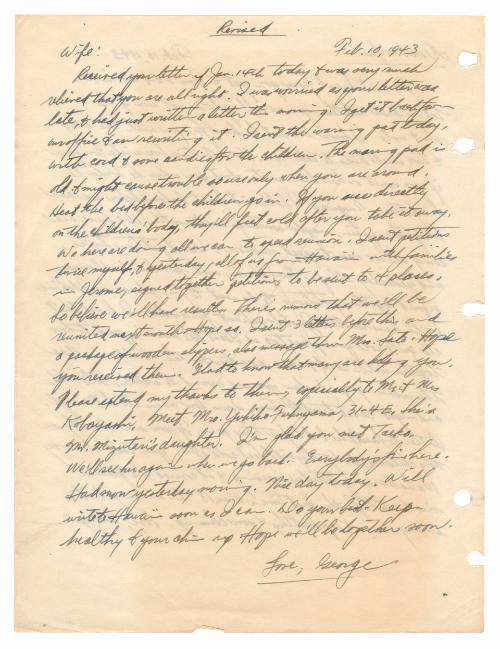 Revised
Wife: Feb. 10, 1943
Received your letter of Jan. 14th today & was very much
relieved that you are all right. I was worried as your letter was
late, & had just written a letter this morning. I get it back from
our office & am rewriting it. I sent the warming pad today,
with cord & some candies for the children. The warming pad is
old & might cause trouble so use only when you are around.
Heat the bed before the children go in. If you use directly
on the children's body, they'll feel cold after you take it away.
We here are doing all we can to speed reunion. I sent petitions
twice myself, & yesterday, all of us from Hawaii with families
in Jerome, signed together petitions to be sent to 4 places.
So believe we'll have results. There's rumors that we'll be
reunited next month. Hope so. I sent 3 letters before this and
a package of wooden slippers, also message thru Mrs. Sato. Hope
you received them. Glad to know that many are helping you.
Please extend my thanks to them, especially to Mr. & Mrs
Kobayashi. Meet Mrs. Yukiko Fukuyama, 31-4-E, She's
Mr. Mizutari's daughter. I'm glad you met Taeko.
We'll see her again when we go back. Everybody's fine here.
Had snow yesterday morning. Nice day today. Will
write to Hawaii soon as I can. Do your best. Keep
healthy & your chin up Hope we'll be together soon.
Love, George